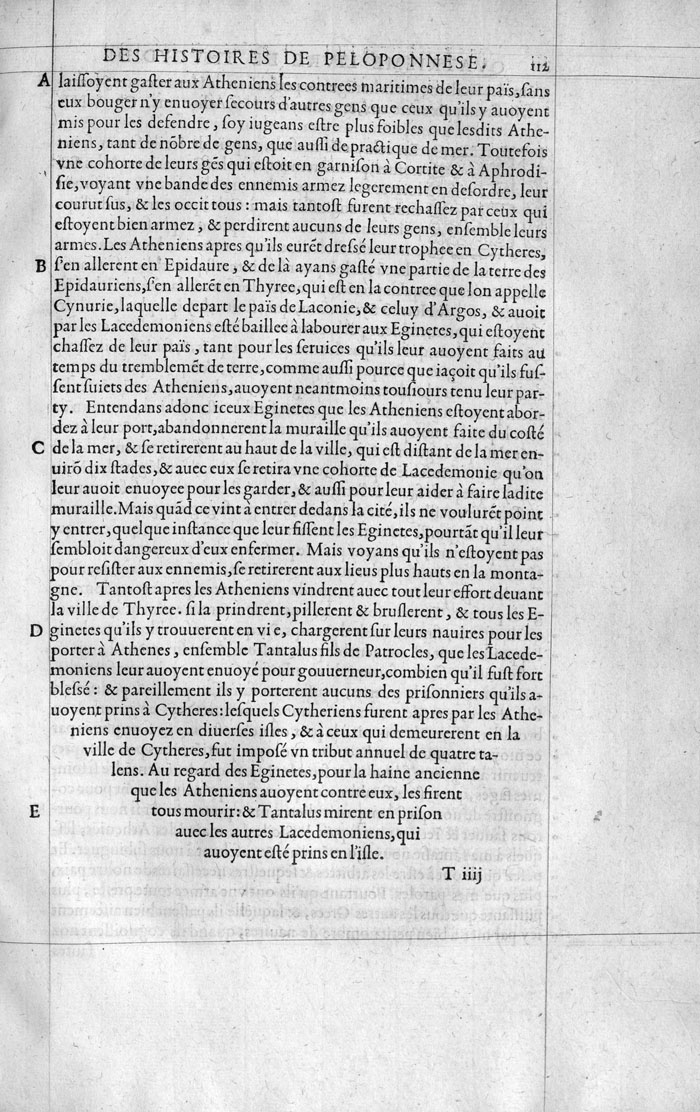 DES HISTOIRES DE PELOPONNESE. 112
A laiſſoyent gaſter aux Atheniens les contrees maritimes de leur païs, ſans
eux bouger n'y enuoyer ſecours d'autres gens que ceux qu'ils y auoyent
mis pour les defendre, ſoy iugeans eſtre plus foibles que leſdits Athe-
niens, tant de nõbre de gens, que auſſi de practique de mer. Toutefois
vne cohorte de leurs gẽs qui eſtoit en garniſon à Cortite & à Aphrodi-
ſie, voyant vne bande des ennemis armez legerement en deſordre, leur
courut ſus, & les occit tous: mais tantoſt furent rechaſſez par ceux qui
eſtoyent bien armez, & perdirent aucuns de leurs gens, enſemble leurs
armes. Les Atheniens apres qu'ils eurẽt dreſſé leur trophee en Cytheres,
B ſ'en allerent en Epidaure, & de là ayans gaſté vne partie de la terre des
Epidauriens, ſ'en allerẽt en Thyree, qui eſt en la contree que lon appelle
Cynurie, laquelle depart le païs de Laconie, & celuy d'Argos, & auoit
par les Lacedemoniens eſté baillee à labourer aux Eginetes, qui eſtoyent
chaſſez de leur païs, tant pour les ſeruices qu'ils leur auoyent faits au
temps du tremblemẽt de terre, comme auſſi pource que iaçoit qu'ils fuſ-
ſent ſuiets des Atheniens, auoyent neantmoins touſiours tenu leur par-
ty. Entendans adonc iceux Eginetes que les Atheniens eſtoyent abor-
dez à leur port, abandonnerent la muraille qu'ils auoyent faite du coſté
C de la mer, & ſe retirerent au haut de la ville, qui eſt diſtant de la mer en-
uirõ dix ſtades, & auec eux ſe retira vne cohorte de Lacedemonie qu'on
leur auoit enuoyee pour les garder, & auſſi pour leur aider à faire ladite
muraille. Mais quãd ce vint à entrer dedans la cité, ils ne voulurẽt point
y entrer, quelque inſtance que leur fiſſent les Eginetes, pourtãt qu'il leur
ſembloit dangereux d'eux enfermer. Mais voyans qu'ils n'eſtoyent pas
pour reſiſter aux ennemis, ſe retirerent aux lieus plus hauts en la monta-
gne. Tantoſt apres les Atheniens vindrent auec tout leur effort deuant
la ville de Thyree. ſi la prindrent, pillerent & bruſlerent, & tous les E-
D ginetes qu'ils y trouuerent en vie, chargerent ſur leurs nauires pour les
porter à Athenes, enſemble Tantalus fils de Patrocles, que les Lacede-
moniens leur auoyent enuoyé pour gouuerneur, combien qu'il fuſt fort
bleſſé: & pareillement ils y porterent aucuns des priſonniers qu'ils a-
uoyent prins à Cytheres: leſquels Cytheriens furent apres par les Athe-
niens enuoyez en diuerſes iſles, & à ceux qui demeurerent en la
ville de Cytheres, fut impoſé vn tribut annuel de quatre ta-
lens. Au regard des Eginetes, pour la haine ancienne
que les Atheniens auoyent contre eux, les firent
E tous mourir: & Tantalus mirent en priſon
auec les autres Lacedemoniens, qui
auoyent eſté prins en l'iſle.
T iiij